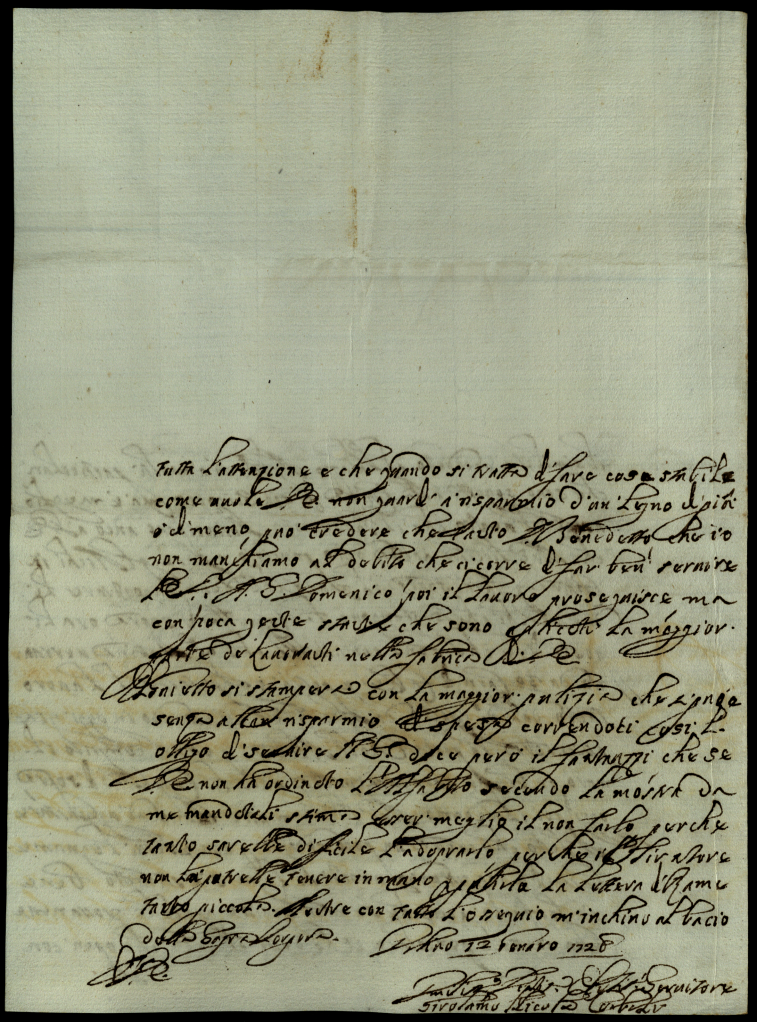 tutta l'attenzione e che quando si tratta di fare cose stabile
come vuole VE non guardi a risparmio d'un legno di più
ò di meno, può credere che tanto Benedetto che io
non manchiamo al debito che ci corre di far ben servire
VE. A S. Domenico poi il lavoro proseguisce ma
con poca gente stante che sono la maggior
parte de Lavoranti nella fabrica di VE
si stamperà con la maggior pulizia che si può e
senza altro risparmio di spesa correndoci così l'
obligo di servire dice però il che se
VE non ha ordinato secondo la mostra da
me mandatali stima esser meglio il non farlo perche
tanto sarebbe difficile l'adoprarlo perche il Tiratore
non la potrebbe tenere in mano la lettera di Rame
tanto piccola. Mentre con tutto l'ossequio m'inchino al bacio
della Sagra Porpora. 12 1728
VE
Servitore
Girolamo Nicola